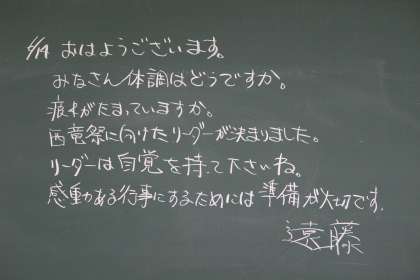 6/19 おはようございます。
みなさん体調はどうですか。
疲れがたまっていますか。
西竜祭に向けたリーダーが決まりました。
リーダーは自覚を持って下さいね。
感動ある行事にするためには準備が大切です。
遠藤